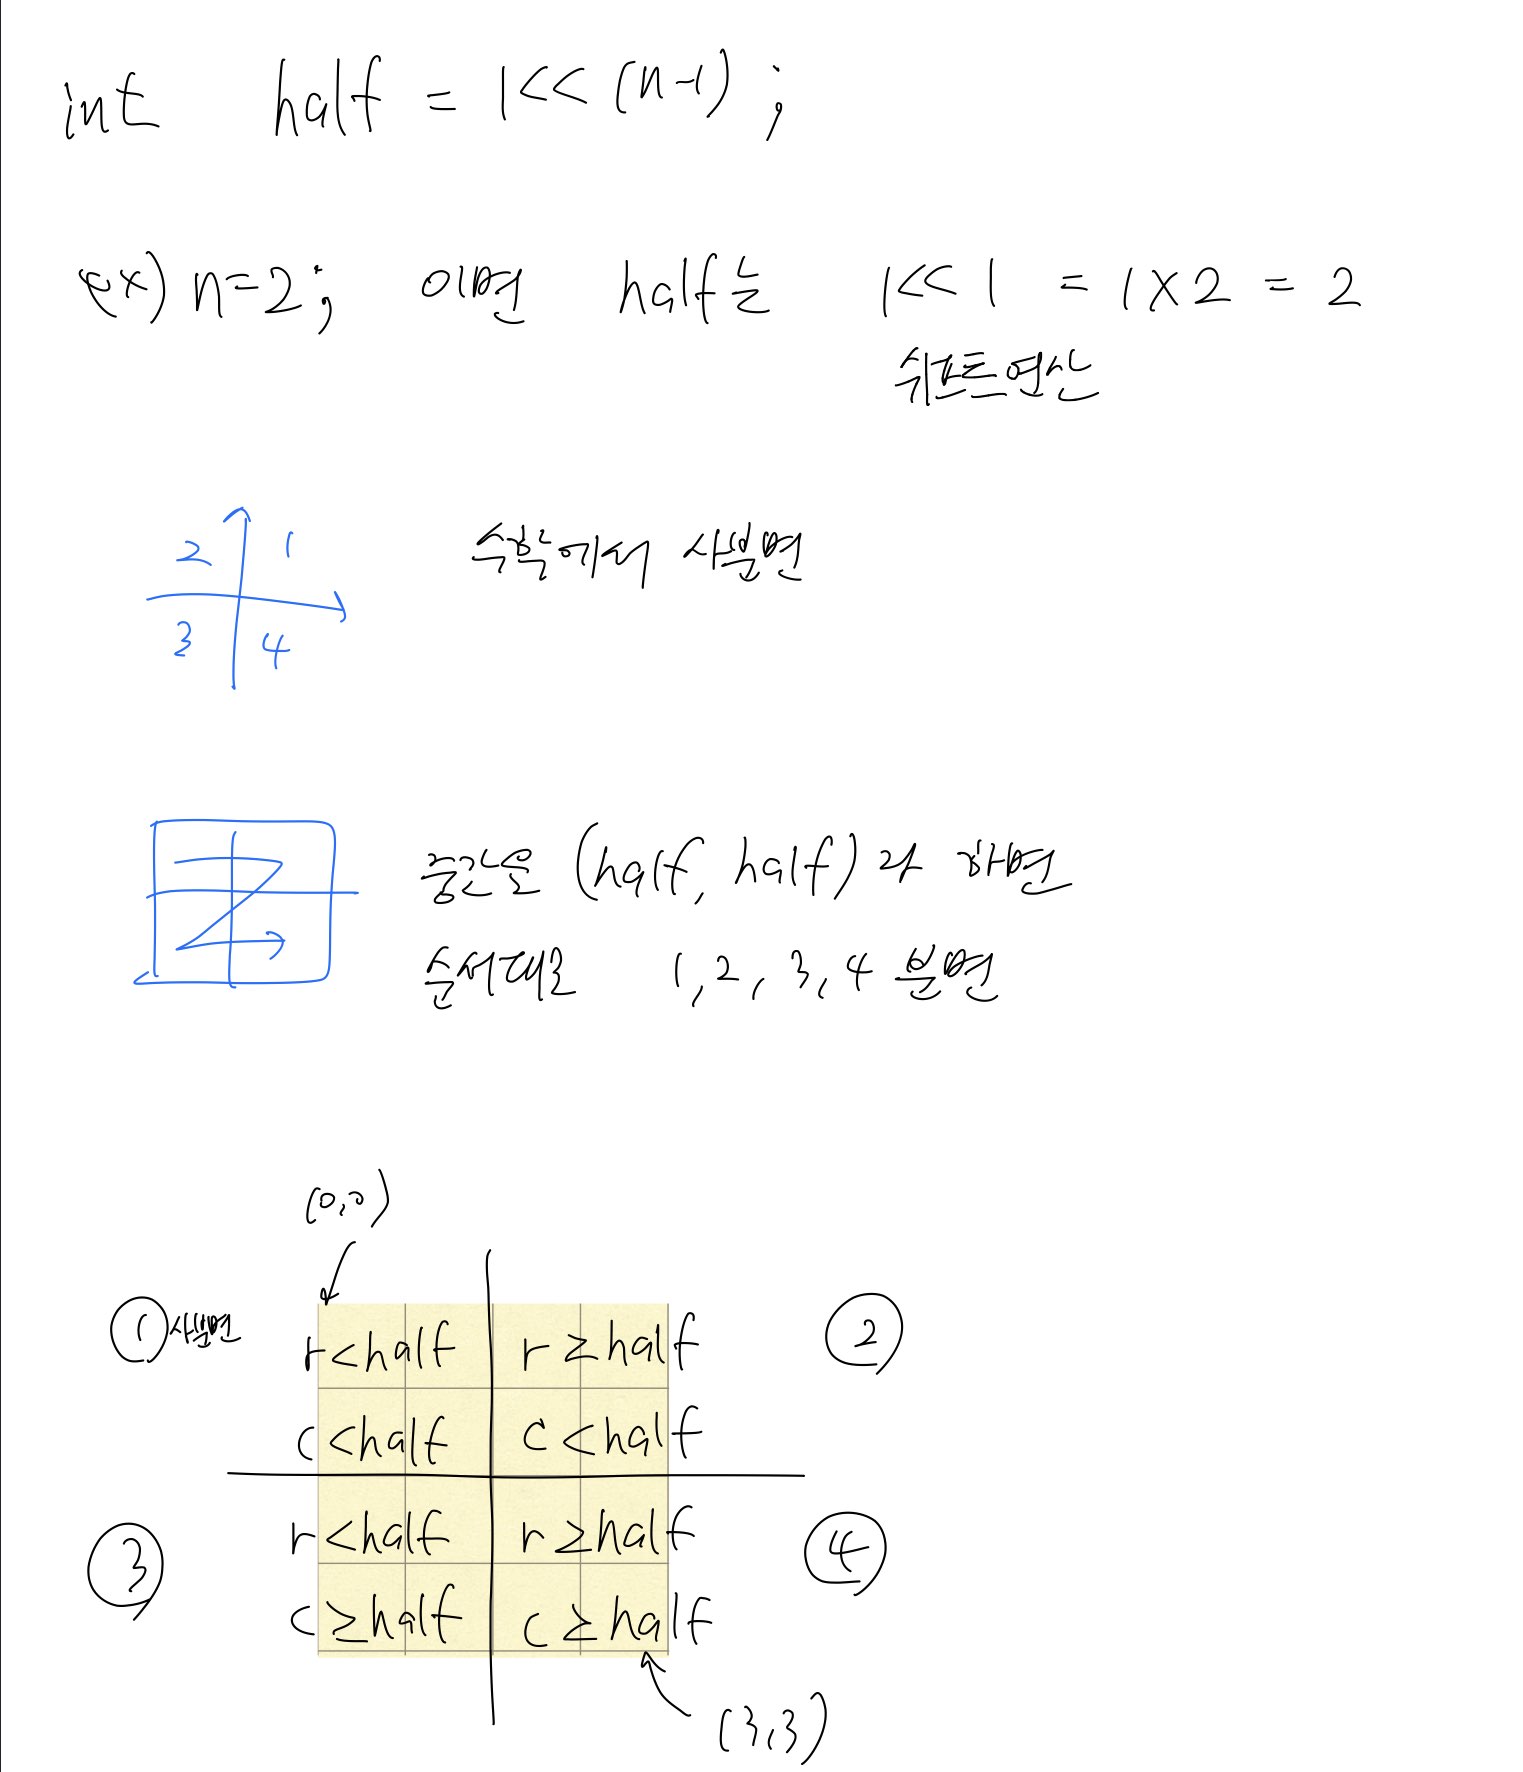 int half = 1<<(n-1);
ex) n=2; 이면 half는 1<<1 = 1×2 = 2
쉬프트연산
2 1
3 4
수학에서 사분면
중간을 (half, half)라 하면
순서대로 1, 2, 3, 4 분면
(0,0)
① 사분면
r<half r≥half
②
c<half c<half
③
r<half r≥half
④
c≥half c≥half
(3,3)